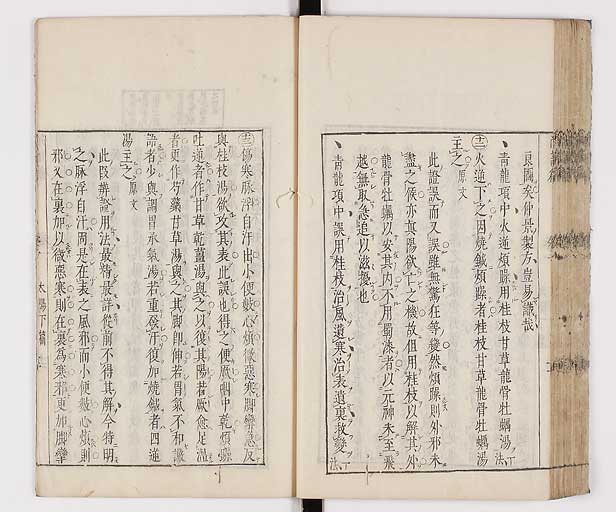 良圖矣仲景製方豈易識哉
、青龍項中火逆煩躁用桂枝甘草龍骨牡蠣湯丁法
十二 火逆下之因燒鍼煩躁者桂枝甘草龍骨牡蠣湯
主之 原文
此證誤而又誤雖無驚狂等變然煩躁則外邪未
盡之候亦真陽欲亡之機故但用桂枝以解其外
龍骨牡蠣以安其内不用蜀漆者以元神未至飛
越無取急追以滋擾也
、青龍項中誤用桂枝治風遺寒治表遺裏救變丁法
十三 傷寒脉浮自汗出小便數心煩微惡寒脚攣急反
與桂枝湯欲攻其表此誤也得之便厥咽中乾煩燥
吐逆者作甘草乾薑湯與之以復其陽若厥愈足温
者更作芍藥甘草湯與之其脚即伸若胃氣不和譫
語者少與調胃承氣湯若重發汗復加燒鍼者四逆
湯主之 原文
此段辨證用法最精最詳從前不得其解今特明
之脉浮自汗固是在表之風邪而小便數心煩則
邪又在裏加以微惡寒則在裏為寒邪更加脚攣
太陽下篇